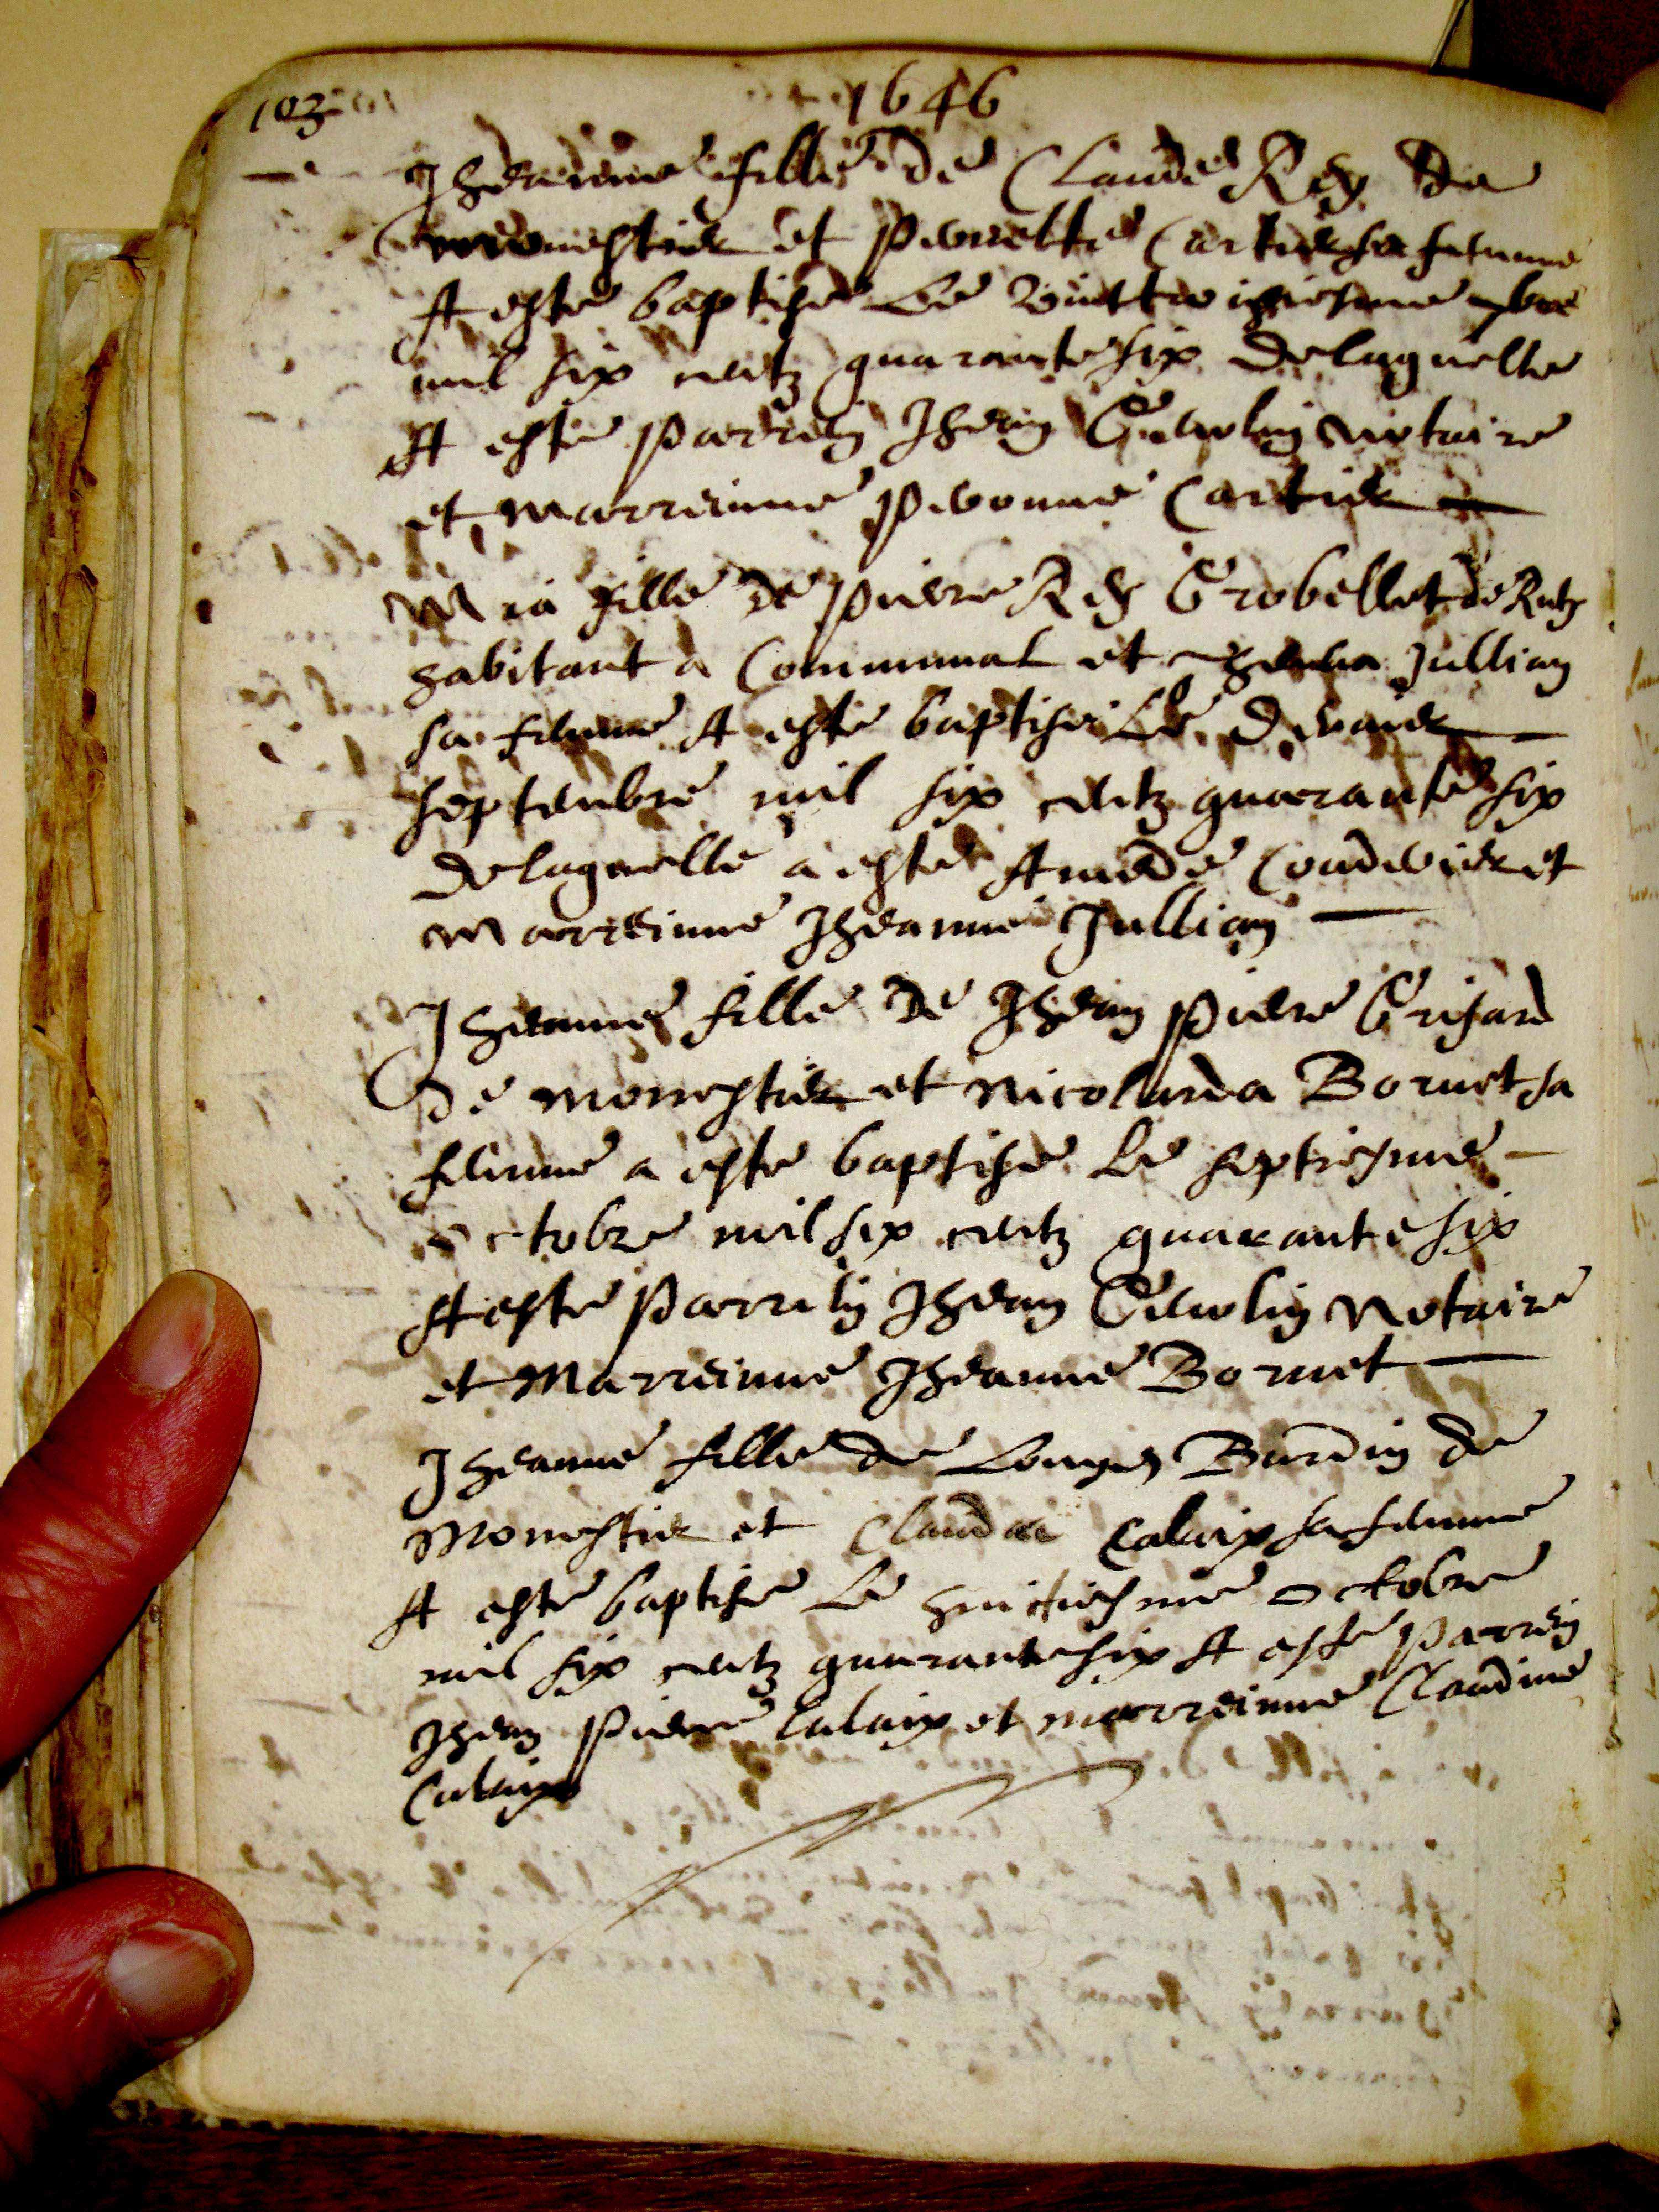 103
1646
Jheanne fille de Claude Rey de
monnestier et Pernette Cartier sa femme
A este baptise le vintt troisiesme 7bre
mil six centz quarante six delaquelle
A este Parrein Jhean Gevolin notaire
et Marreinne Pivonne Cartier
Mia fille de Pierre Rey Grobellet de
habitant a Communal et Jullian
sa femme A este baptise le Dernier
septenbre mil six centz quarante six
delaquelle a este Amede Coudurier et
Marreinne Jheanne Jullian
Jheanne fille de Jhean Pierre Grisard
de monnestier et Nicolarda Bornet sa
femme a este baptise le septiesme
octobre mil six centz quarante six
A este Parrein Jhean Gevolin Notaire
et Marreinne Jheanne Bornet
Jheanne fille de Louys Burdin de
Monestier et Claudaz Calaix sa femme
A este baptise le huictiesme octobre
mil six centz quarante six A este Parrein
Jhean Pierre Calaix et marreinne Claudine
Calaix